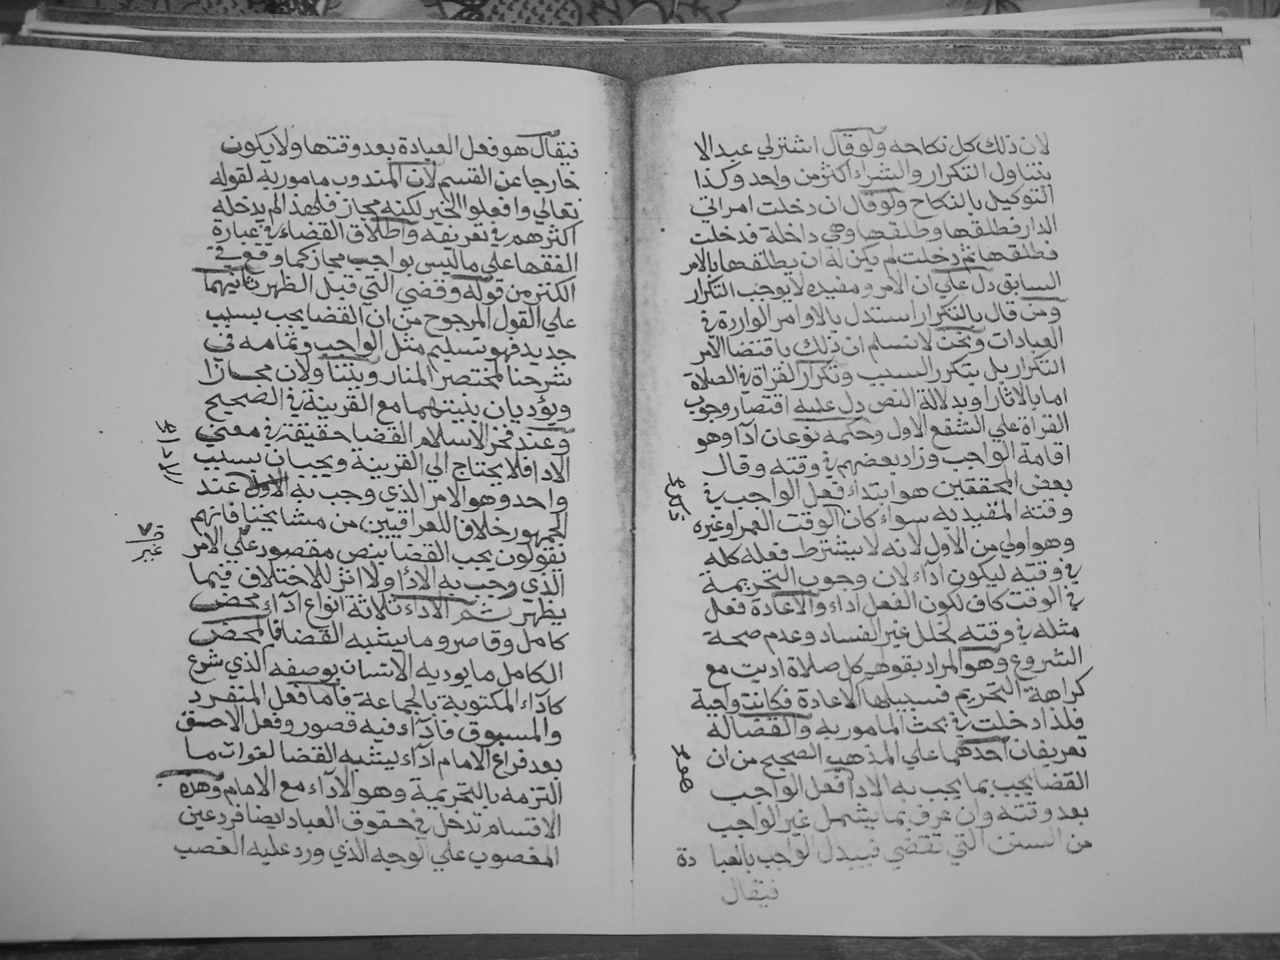 لان ذلك كل نكاحه ولو قال اشتر لي عبدا لا
يتناول التكرار والشراء اكثر من واحد وكذا
التوكيل بالنكاح ولو قال ان دخلت امراتي
الدار فطلقها وطلقها وهي داخلة فدخلت
فطلقها ثم دخلت لم يكن له ان يطلقها بالامر
السابق دل علي ان الامر ومفيده لا يوجب التكرار
ومن قال بالتكرار استدل بالاوامر الواردة في
العبادات ونحن لا نسلم ان ذلك باقتضا الامر
التكرار بل بتكرر السبب وتكرار القراة في الصلاة
اما بالاثار او بدلالة النص دل عليه اقتصار وجوب
القراة علي الشفع الاول وحكمه نوعان ادآ وهو
اقامة الواجب وزاد بعضهم في وقته وقال
بعض المحققين هو ابتداء فعل الواجب في
وقته المقيد به سواء كان الوقت العمر او غيره
وهو اولي من الاول لانه لا يشترط فعله كله
في وقته ليكون ادآء لان وجوب التحريمة
في الوقت كاف لكون الفعل اداء والاعادة فعل
مثله في وقته لخلل غير الفساد وعدم صحة
الشروع وهو المراد بقولهم كل صلاة اديت مع
كراهة التحريم فسبيلها الاعادة فكانت واجبة
فلذا دخلت في بحث المامور به والقضا له
تعريفان احدهما علي المذهب الصحيح من ان
القضا يجب بما يجب به الادا فعل الواجب
بعد وقته وان عرف بما يشمل غير الواجب
من السنن التي تقضي فيبدل الواجب بالعبا دة
فيقال
فيقال هو فعل العبادة بعد وقتها ولا يكون
خارجا عن القسم لان المندوب مامور به لقوله
تعالي وافعلوا الخير لكنه مجاز فلهذا لم يدخله
اكثرهم في تعريفه واطلاق القضاء في عبارة
الفقها علي ما ليس بواجب مجاز كما وقع في
الكنز من قوله وقضي التي قبل الظهر ثانيهما
علي القول المرجوح من ان القضا يجب بسبب
جديد فهو تسليم مثل الواجب وتمامه في
شرحنا لمختصر المنار ويتناولان مجازا
ويؤديان بنيتهما مع القرينة في الصحيح
وعند فخر الاسلام القضا حقيقة في معني
الادا فلا يحتاج الي القرينة ويجبان بسبب
واحد وهو الامر الذي وجب به الاول عند
الجمهور خلافا للعراقيين من مشايخنا فانهم
يقولون يجب القضا بنص مقصود علي الامر
الذي وجب به الادآ ولا اثر للاختلاف فيما
يظهر ثم الاداء ثلاثة انواع ادآء محض
كامل وقاصر وما يشبه القضا فالمحض
الكامل ما يوديه الانسان بوصفه الذي شرع
كادآء المكتوبة بالجماعة فاما فعل المنفرد
والمسبوق فادآء فيه قصور وفعل الاحق
بعد فراغ الامام ادآء يشبه القضا لفوات ما
التزمه بالتحريمة وهو الادآء مع الامام وهذه
الاقسام تدخل في حقوق العباد ايضا فرد عين
المغصوب علي الوجه الذي ورد عليه الغصب